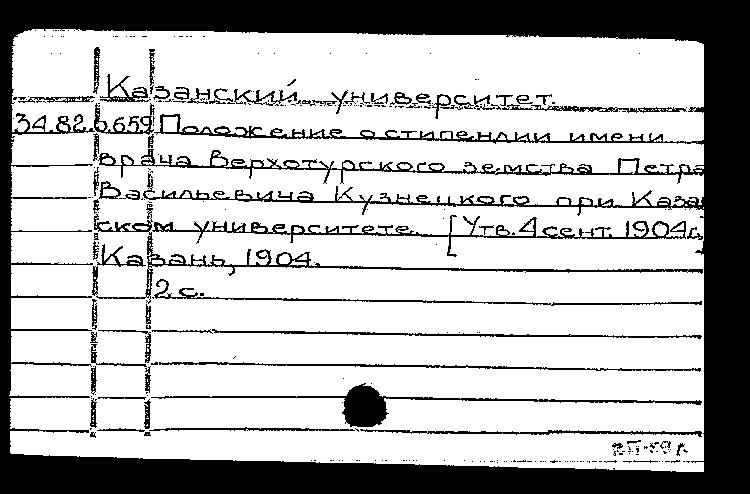 Казанский университет.
34.82.6.659 Положение о стипендии имени
врача Верхотурского земства Петра
Васильевича Кузнецкого при Казан
ском университете. [Утв. 4 сент. 1904г.]
Казань, 1904.
2 с.